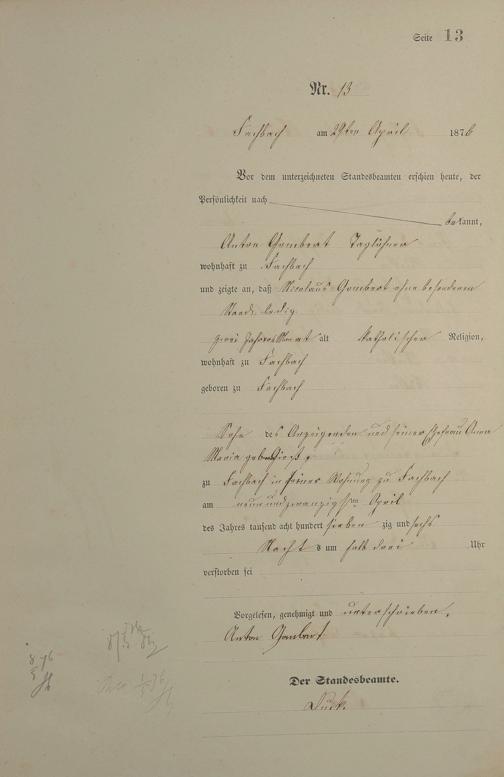 Seite 13
Nr. 13
Fachbach am 29ten April 1876
Vor dem unterzeichneten Standesbeamten erschien heute, der
Persönlichkeit nach
bekannt,
Anton Gombert Taglöhner
wohnhaft zu Fachbach
und zeigte an, daß Nicolaus Gombert ohne besonderen
Stand, ledig
zwei Jahre alt katholischer Religion,
wohnhaft zu Fachbach
geboren zu Fachbach
Sohn des Anzeigenden und seiner Ehefrau Anna
Maria geb.
zu Fachbach in seiner Wohnung zu Fachbach
am neunundzwanzigsten April
des Jahres tausend acht hundert sieben zig und sechs
Nachts um halb drei Uhr
verstorben sei
Vorgelesen, genehmigt und unterschrieben.
Anton Gombert
Der Standesbeamte.